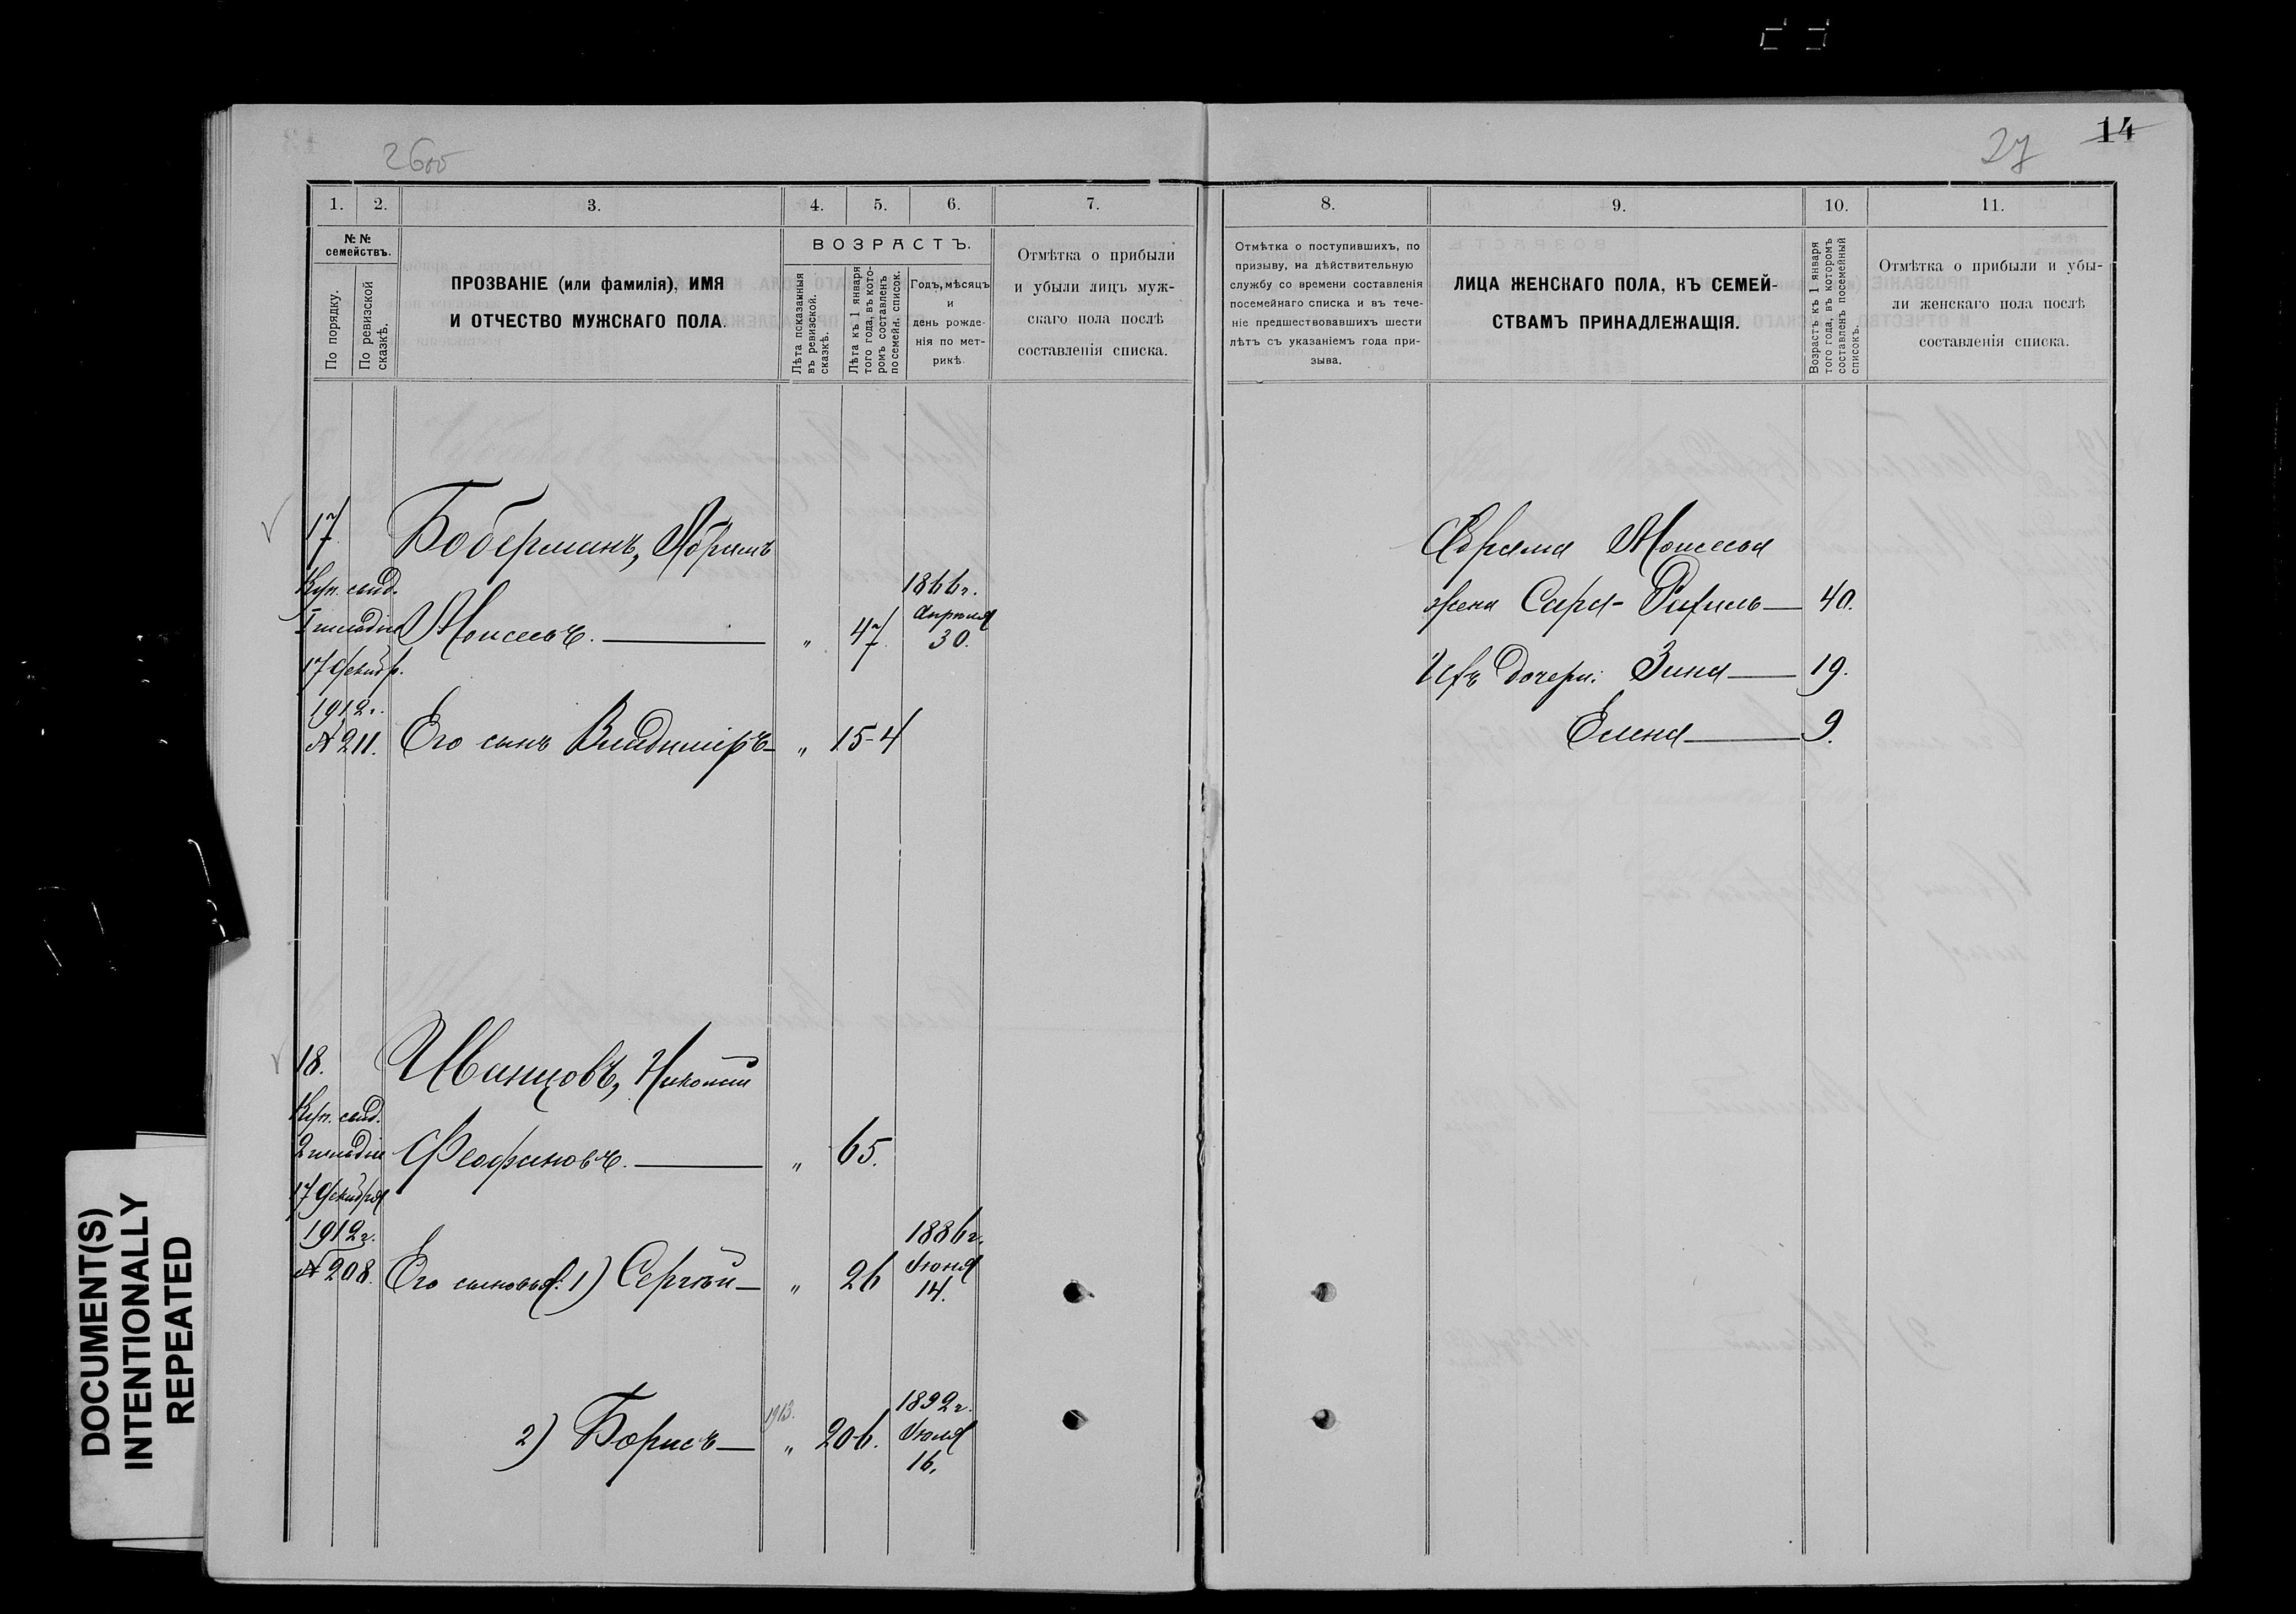 14
27
2600
1. 2. 3. 4. 5. 6. 7. 8. 9. 10. 11.
№ №
семействъ.
По порядку.
По ревизской
сказкѣ.
ПРОЗВАНІЕ (или фамилія), ИМЯ
И ОТЧЕСТВО МУЖСКАГО ПОЛА.
ВОЗРАСТЪ.
Лѣта показанныя
въ ревизской.
сказкѣ.
Лѣта къ 1 января
того года, въ кото-
ромъ составленъ
посемейн. список.
Годъ, мѣсяцъ
и
день рожде-
нія по мет-
рикѣ.
Отмѣтка о прибыли
и убыли лицъ муж-
скаго пола послѣ
составленія списка.
Отмѣтка о поступившихъ, по
призыву, на дѣйствительную
службу со времени составленія
посемейнаго списка и въ тече-
ніе предшествовавшихъ шести
лѣтъ съ указаніемъ года при-
зыва.
ЛИЦА ЖЕНСКАГО ПОЛА, КЪ СЕМЕЙ-
СТВАМЪ ПРИНАДЛЕЖАЩІЯ.
Возрастъ къ 1 января
того года, въ которомъ
составленъ посемейный
списокъ.
Отмѣтка о прибыли и убы-
ли женскаго пола послѣ
составленія списка.
17
Куп. свид.
I гильдіи
17 Декабр.
1912 г.
№ 211.
Боберманъ, Абрамъ
Моисеевъ. — " 47
1866 г.
Апрѣля
30.
Его сынъ Владиміръ — " 15-4
Абрама Моисеева
жена Сара-Рахиль — 40.
Ихъ дочери: Зина — 19.
Елена — 9.
18.
Куп. свид.
2 гильдіи
17 Декабря
1912 г.
№ 208.
Иванцовъ, Николай
Феофановъ. — " 65.
Его сыновья: 1) Сергѣй — " 26
1886 г.
Іюня
14.
2) Борисъ — " 20-6.
1913.
1892 г.
Іюля
16.
DOCUMENT(S)
INTENTIONALLY
REPEATED